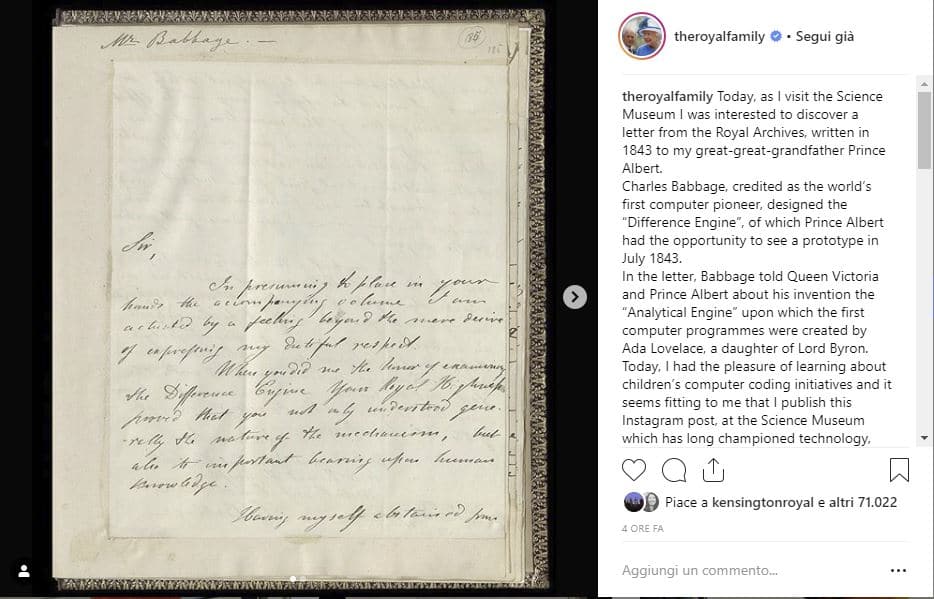 Mr Babbage. —
185
Sir,
In presuming to place in your
hands the accompanying volume I am
actuated by a feeling beyond the mere desire
of expressing my dutiful respect.
When you did me the honor of examining
the Difference Engine Your Royal Highness
proved that you not only understood gene-
-rally the nature of the mechanism, but
also its important bearing upon human
knowledge.
Having myself abstained from
theroyalfamily • Segui già
theroyalfamily Today, as I visit the Science
Museum I was interested to discover a
letter from the Royal Archives, written in
1843 to my great-great-grandfather Prince
Albert.
Charles Babbage, credited as the world’s
first computer pioneer, designed the
“Difference Engine”, of which Prince Albert
had the opportunity to see a prototype in
July 1843.
In the letter, Babbage told Queen Victoria
and Prince Albert about his invention the
“Analytical Engine” upon which the first
computer programmes were created by
Ada Lovelace, a daughter of Lord Byron.
Today, I had the pleasure of learning about
children’s computer coding initiatives and it
seems fitting to me that I publish this
Instagram post, at the Science Museum
which has long championed technology,
Piace a kensingtonroyal e altri 71.022
4 ORE FA
Aggiungi un commento...